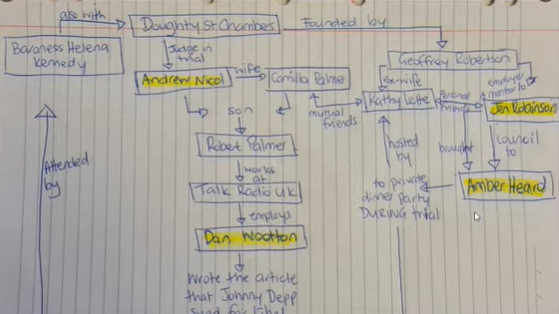 also with
Doughty St Chambers
Founded by
Baroness Helena
Kennedy
Judge in
trial
Geoffrey Robertson
Andrew Nicol
wife
Camilla Palmer
ex-wife
employer
mentor to
Kathy Lette
Personal
friends
Jen Robinson
son
mutual
friends
Robert Palmer
hosted
by
brought
council
to
Attended
by
works
at
Talk Radio UK
to private
dinner party
DURING trial
Amber Heard
employs
Dan Wootton
Wrote the article
that Johnny Depp
sued for libel